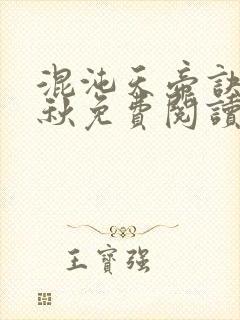 混沌天帝訣
秋免費閱讀
王寶強